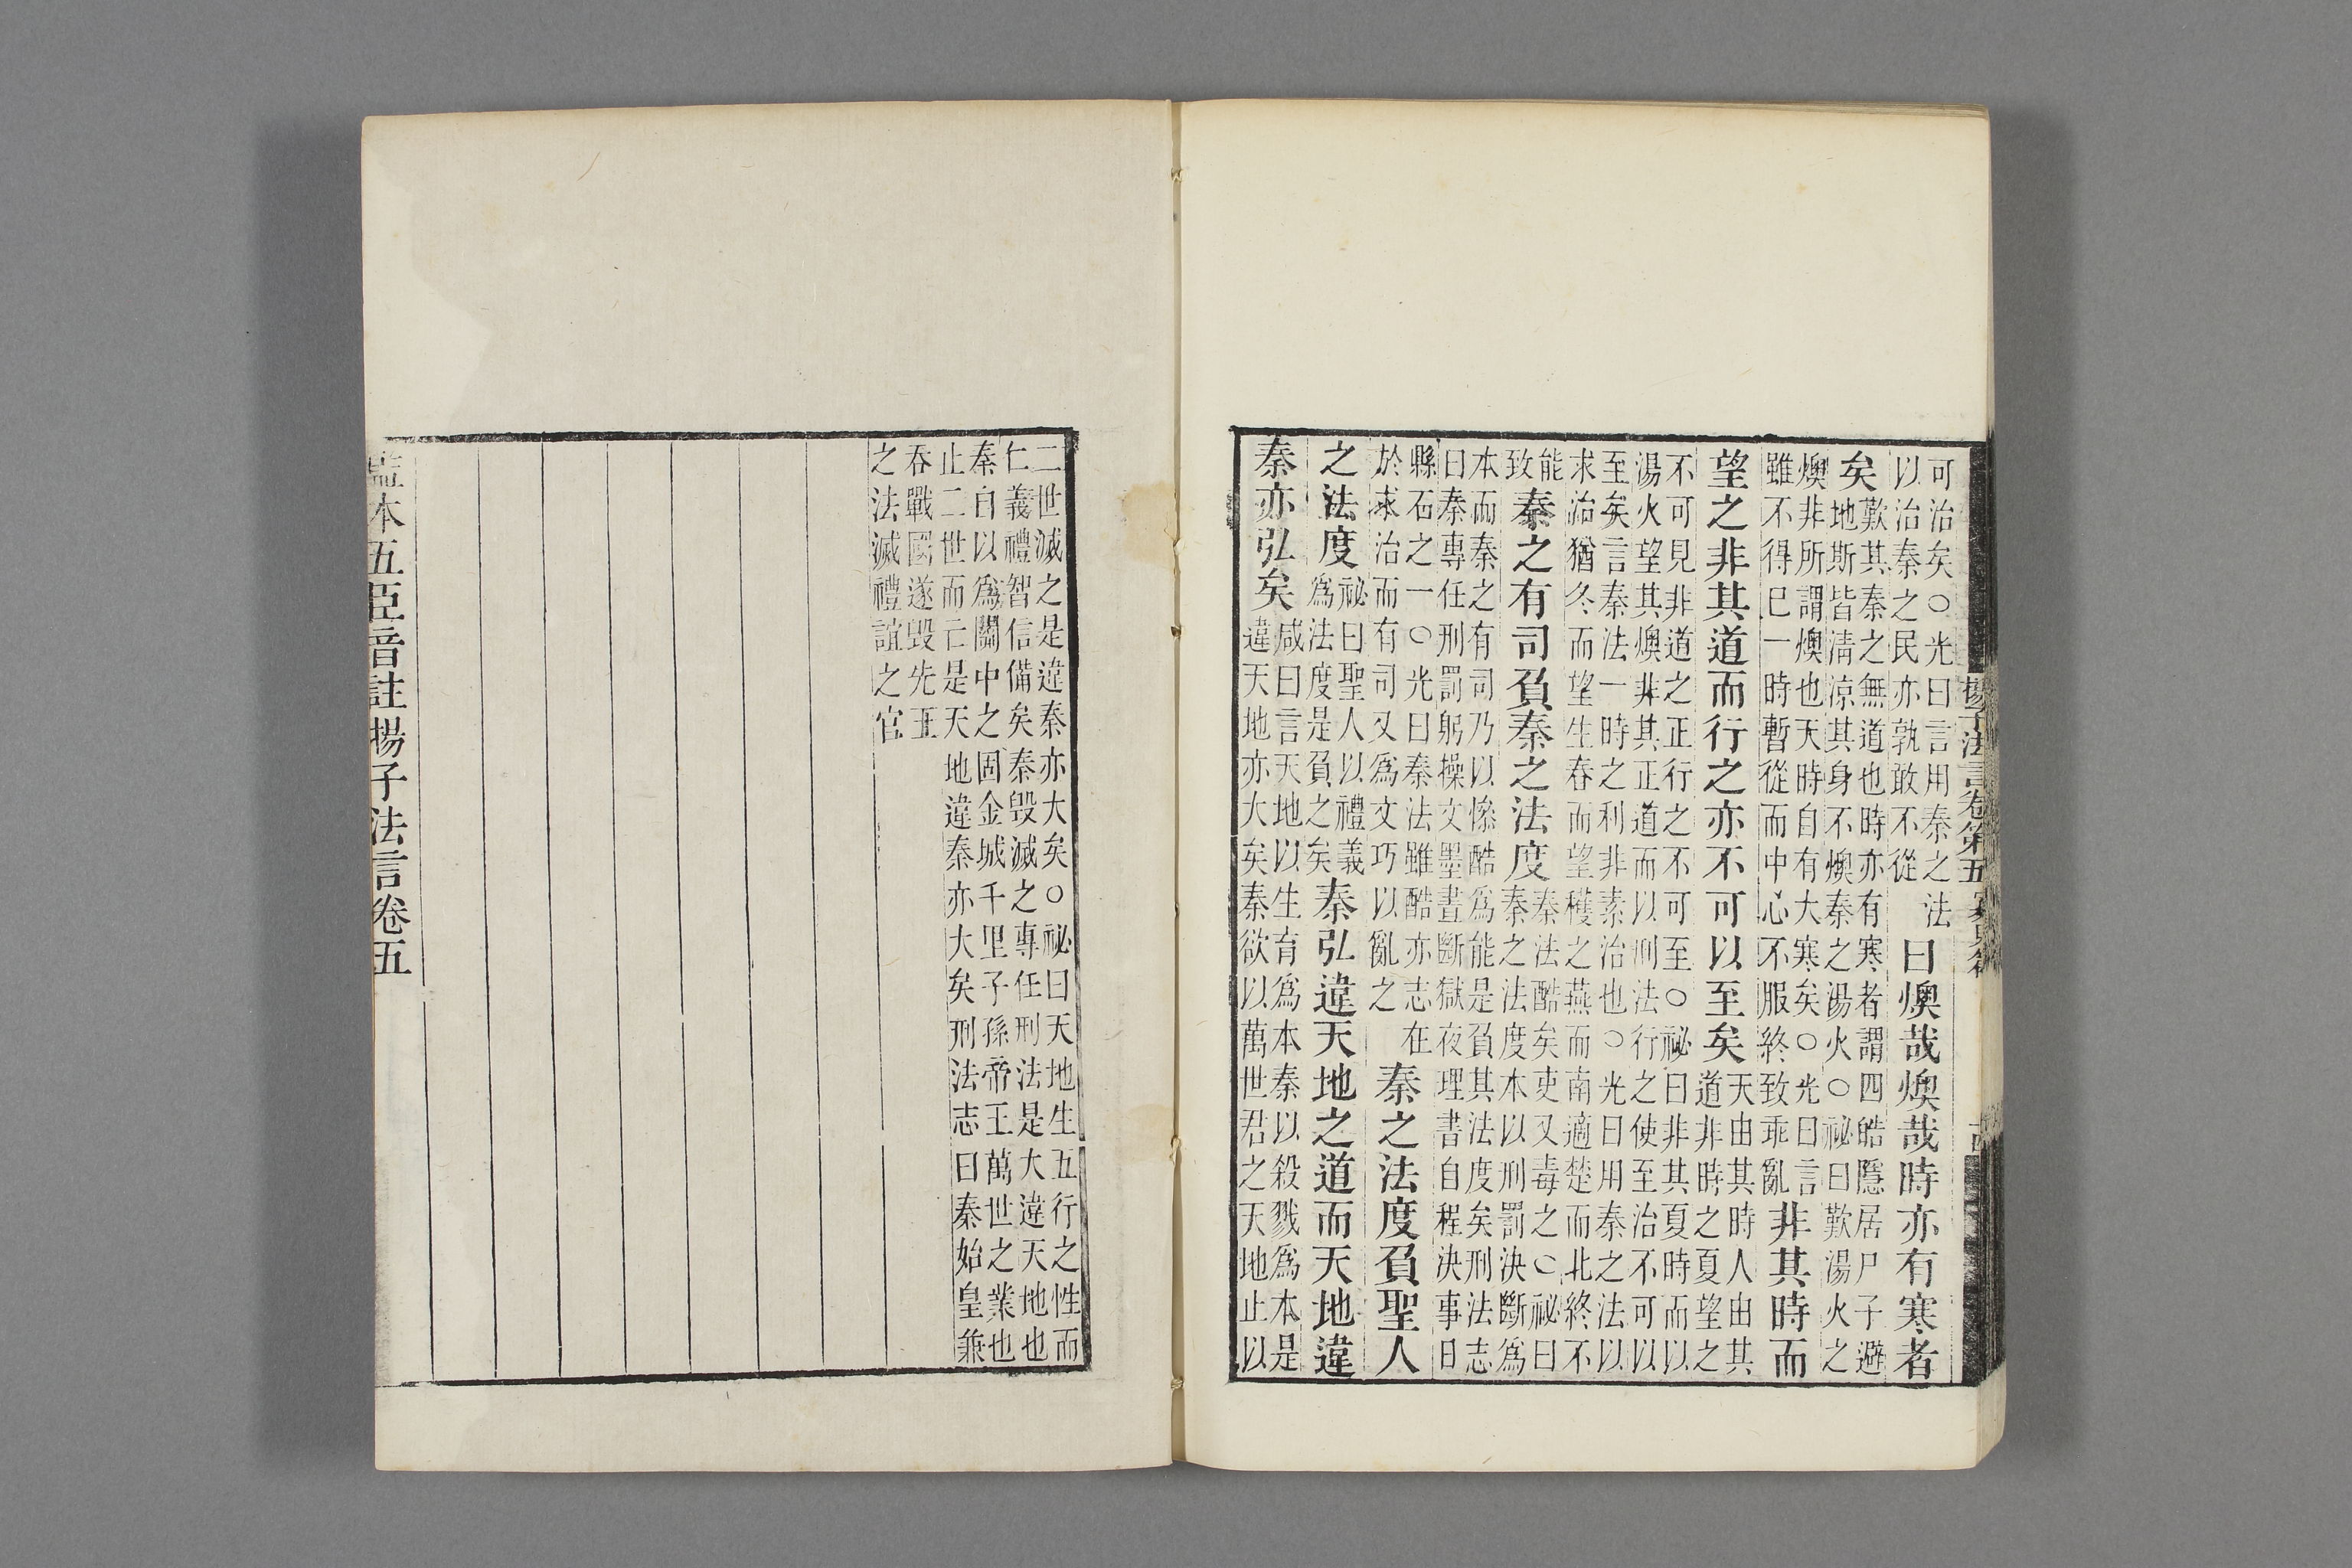 揚子法言卷第五 寡見篇 十四
可治矣○光曰言用秦之法
以治秦之民亦孰敢不從
曰燠哉燠哉時亦有寒者
矣
歎其秦之無道也時亦有寒者謂四皓隱居尸子避
地斯皆清凉其身不燠秦之湯火○祕曰歎湯火之
燠非所謂燠也天時自有大寒矣○光曰言
雖不得已一時暫從而中心不服終致乖亂
非其時而
望之非其道而行之亦不可以至矣
天由其時人由其
道非時之夏望之
不可見非道之正行之不可至○祕曰非其夏時而以
湯火望其燠非其正道而以刑法行之使至治不可以
至矣言秦法一時之利非素治也○光曰用秦之法以
求治猶冬而望生春而望穫之燕而南適楚而北終不
能
致
秦之有司負秦之法度
秦法酷矣吏又毒之○祕曰
秦之法度本以刑罰決斷爲
本而秦之有司乃以慘酷爲能是負其法度矣刑法志
曰秦專任刑罰躬操文墨晝斷獄夜理書自程決事日
縣石之一○光曰秦法雖酷亦志在
於求治而有司又爲文巧以亂之
秦之法度負聖人
之法度
祕曰聖人以禮義
爲法度是負之矣
秦弘違天地之道而天地違
秦亦弘矣
咸曰言天地以生育爲本秦以殺戮爲本是
違天地亦大矣秦欲以萬世君之天地止以
二世滅之是違秦亦大矣○祕曰天地生五行之性而
仁義禮智信備矣秦毀滅之專任刑法是大違天地也
秦自以爲關中之固金城千里子孫帝王萬世之業也
止二世而亡是天地違秦亦大矣刑法志曰秦始皇兼
吞戰國遂毀先王
之法滅禮誼之官
監本五臣音註揚子法言卷五